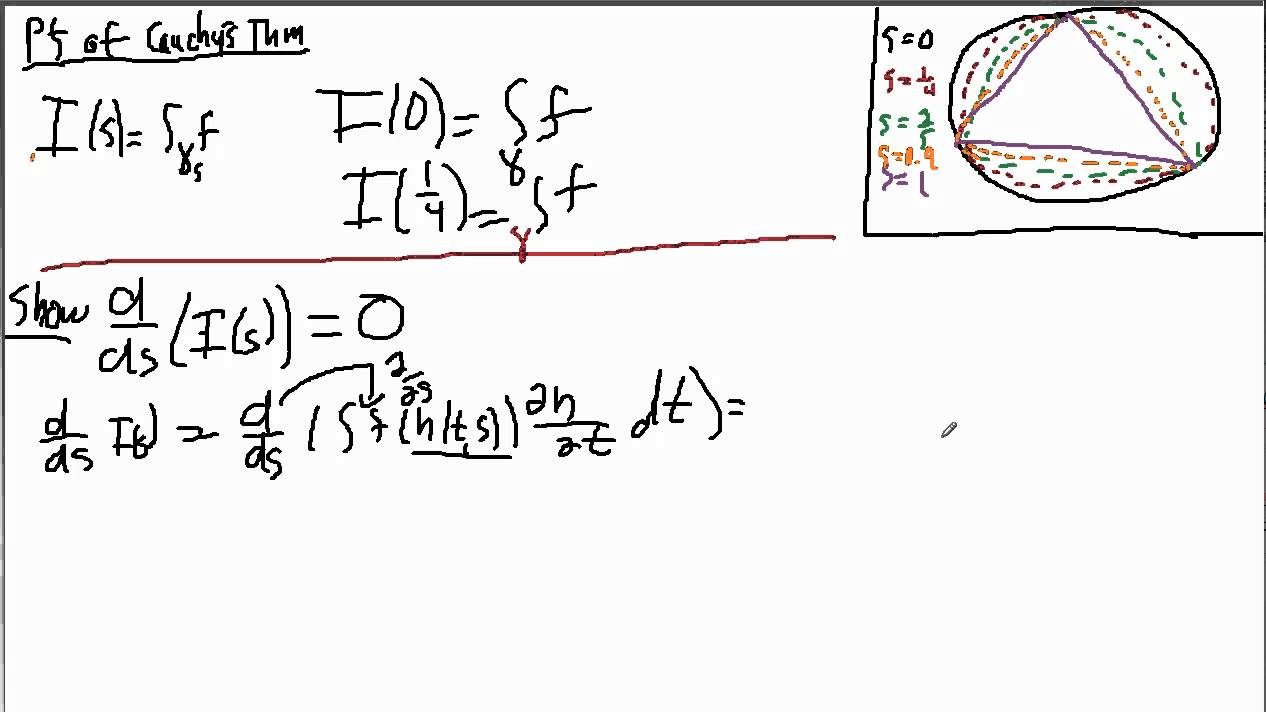 Pf of Cauchy's Thm
I(s) = ∫_γₛ f
I(0) = ∫_γ f
I(1/4) = ∫_γ f
s=0
s=1/4
s=2/5
s=0.9
s=1
Show d/ds (I(s)) = 0
∂/∂s
d/ds I(s) = d/ds (∫ f(h(t,s)) ∂h/∂t dt) =